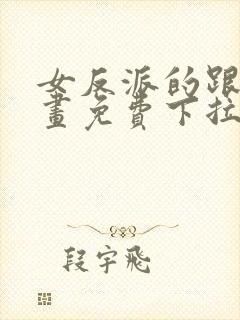 女反派的跟
畫免費下拉
段宇飛